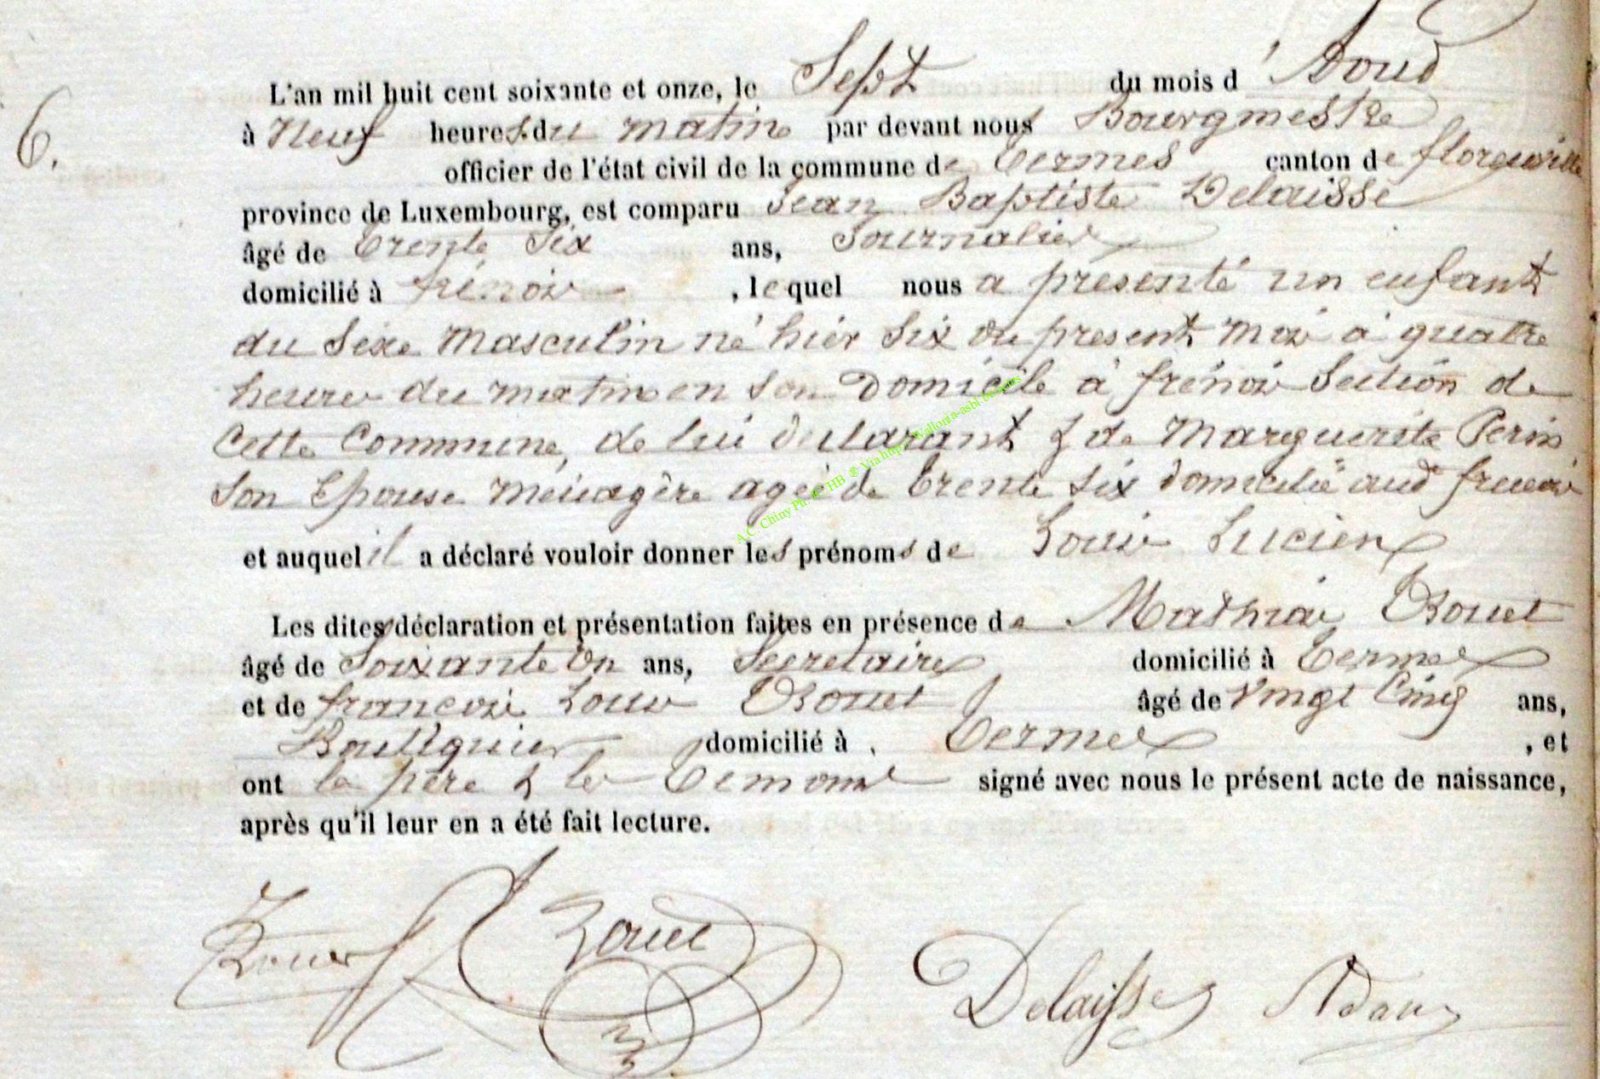 6.
L'an mil huit cent soixante et onze, le Sept du mois d'Aoud
à Neuf heures du matin par devant nous Bourgmestre
officier de l'état civil de la commune de termes canton de florenville
province de Luxembourg, est comparu Jean Baptiste Delaisse
âgé de trente six ans, Journalier
domicilié à frénois, lequel nous a presenté un enfant
du sexe masculin né hier six du present mois à quatre
heures du matin en son Domicile à frénois Section de
cette Commune, de lui declarant & de Marguerite Perin
son Epouse menagère agée de trente six domicilié aud frenois
et auquel il a déclaré vouloir donner les prénoms de Louis Lucien
Les dites déclaration et présentation faites en présence de Mathias Rouet
âgé de Soixante un ans, Secretaire domicilié à termes
et de francois Louis Rouet âgé de Vingt Cinq ans,
domicilié à termes, et
ont le père & les temoins signé avec nous le présent acte de naissance,
après qu'il leur en a été fait lecture.
Rouet
Delaisse Adam
A.C. Chiny